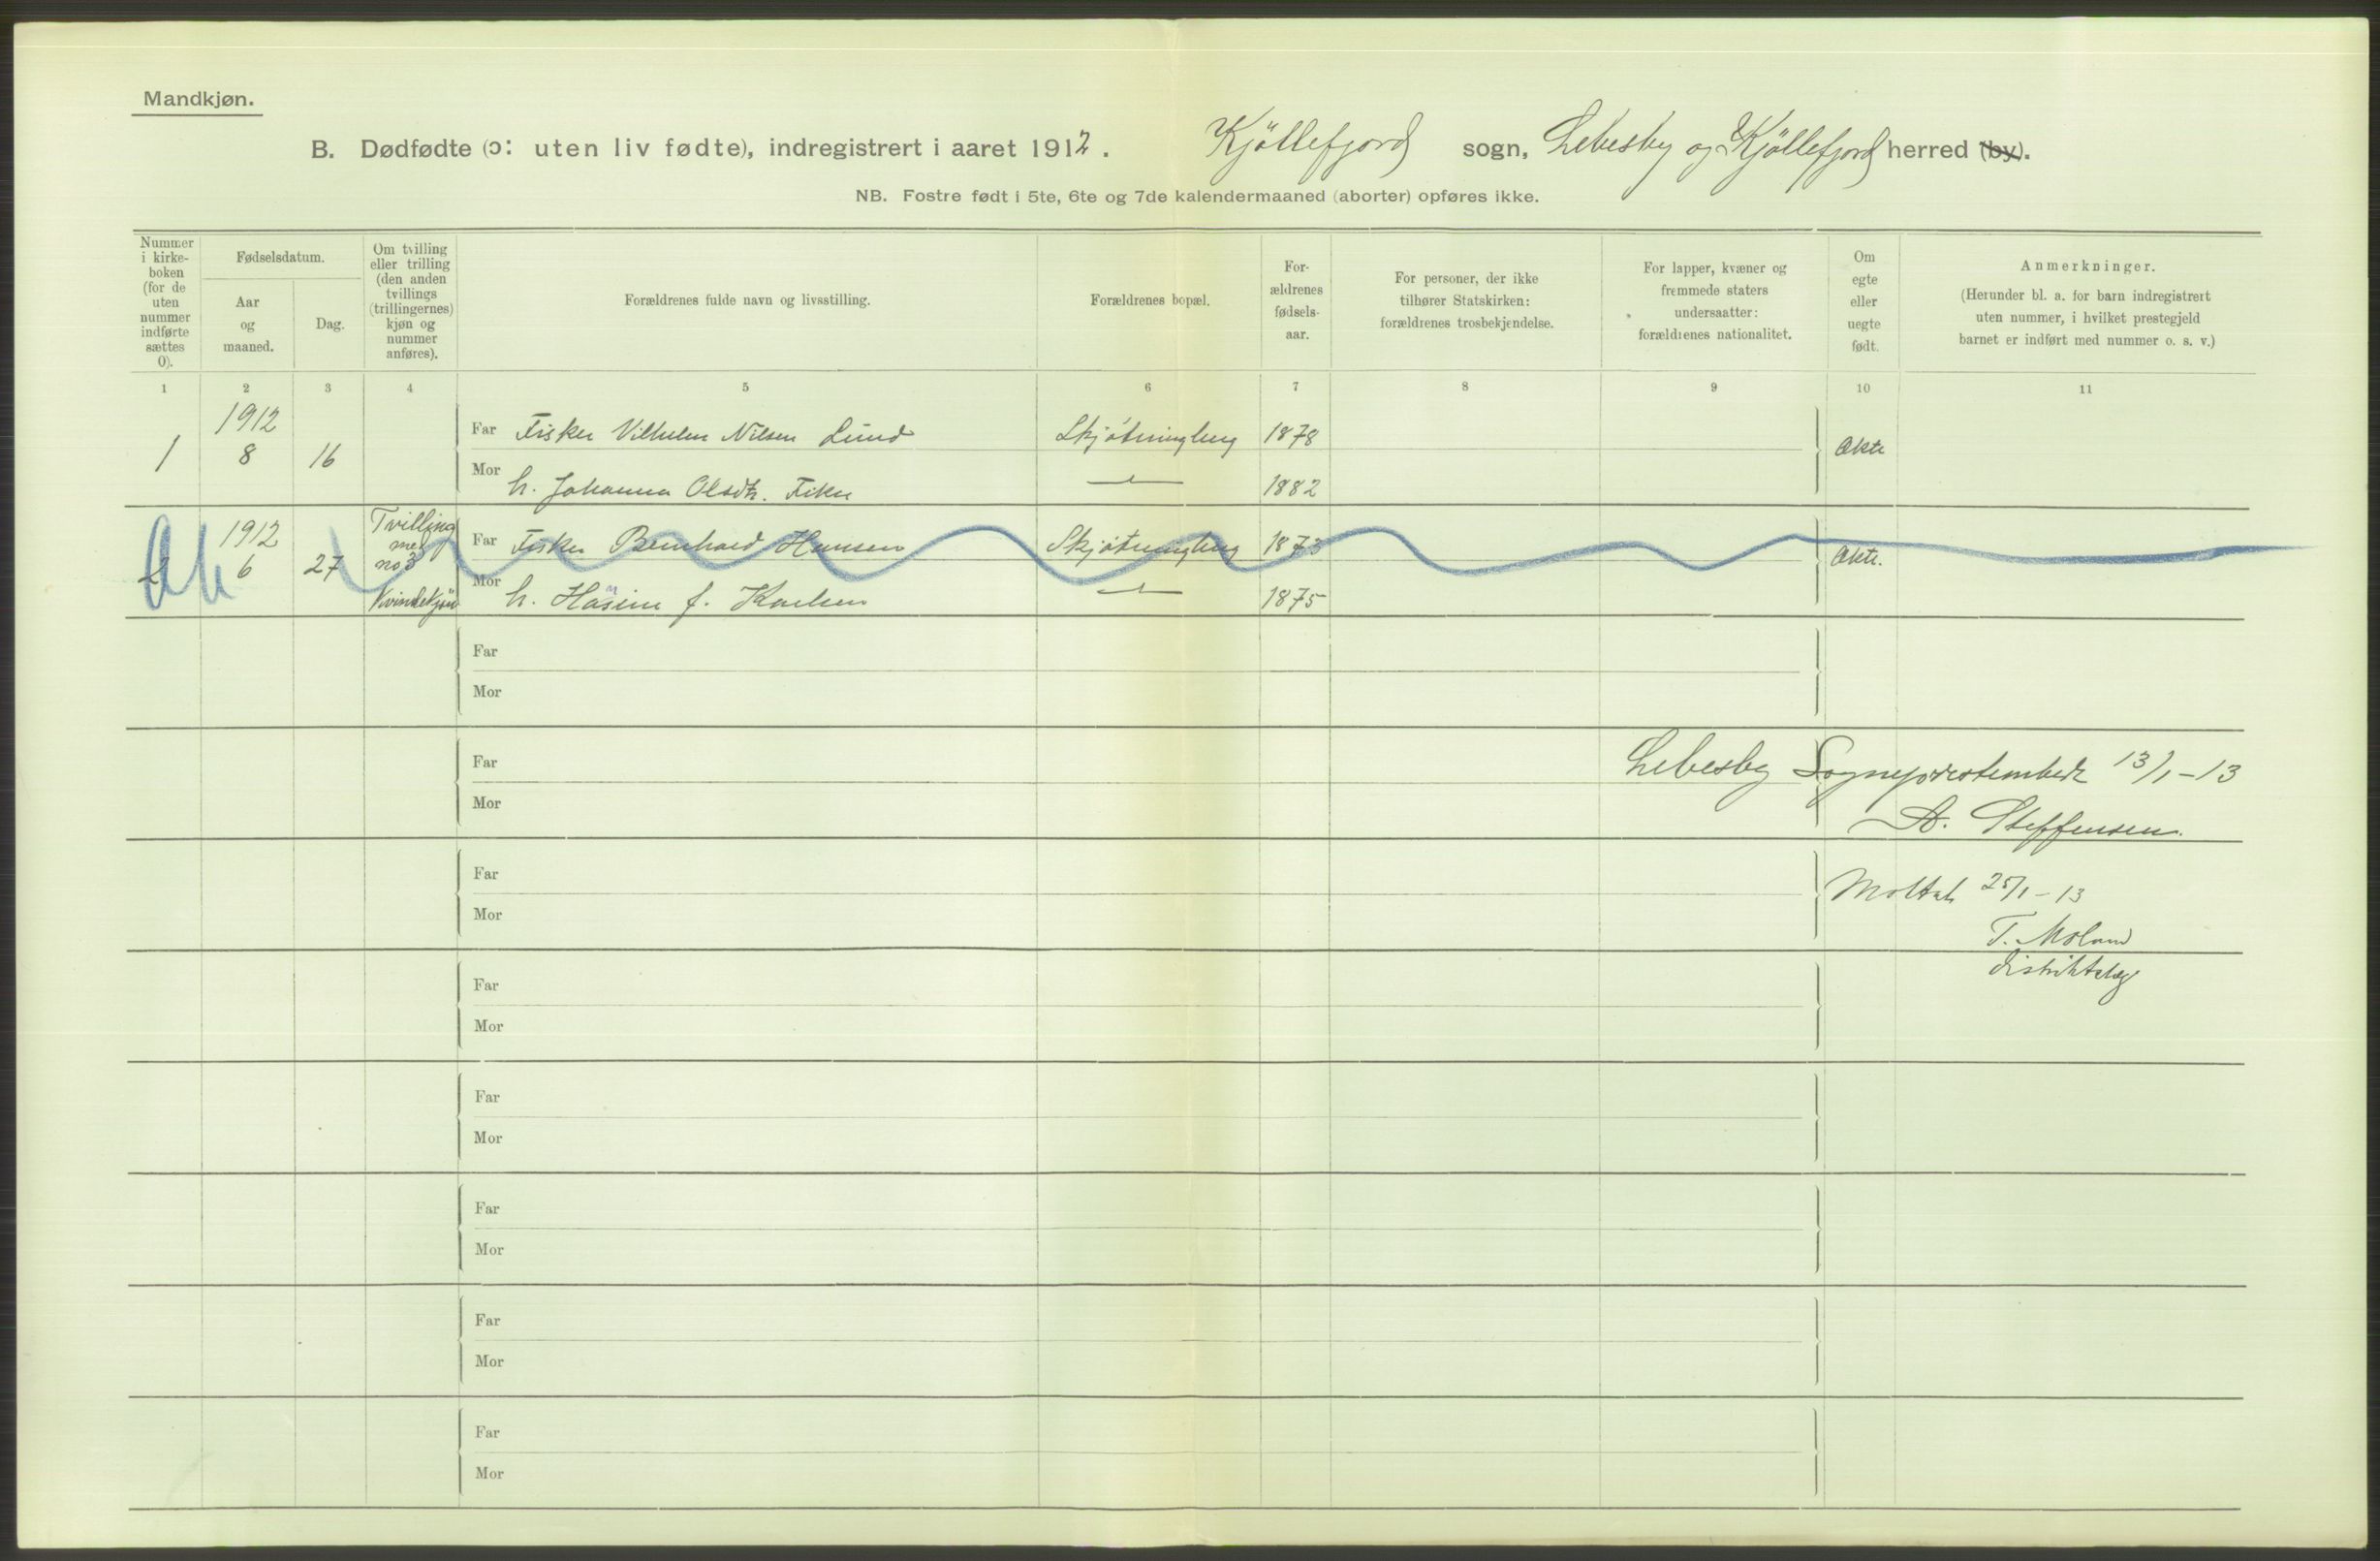 Mandkjøn.
B. Dødfødte (ɔ: uten liv fødte), indregistrert i aaret 1912. Kjöllefjord sogn, Lebesby og Kjöllefjord herred (by).
NB. Fostre født i 5te, 6te og 7de kalendermaaned (aborter) opføres ikke.
Nummer
i kirke-
boken
(for de
uten
nummer
indførte
sættes
0).
Fødselsdatum.
Aar
og
maaned.
Dag.
Om tvilling
eller trilling
(den anden
tvillings
(trillingernes)
kjøn og
nummer
anføres).
Forældrenes fulde navn og livsstilling.
Forældrenes bopæl.
For-
ældrenes
fødsels-
aar.
For personer, der ikke
tilhører Statskirken:
forældrenes trosbekjendelse.
For lapper, kvæner og
fremmede staters
undersaatter:
forældrenes nationalitet.
Om
egte
eller
uegte
født.
Anmerkninger.
(Herunder bl. a. for barn indregistrert
uten nummer, i hvilket prestegjeld
barnet er indført med nummer o. s. v.)
1 2 3 4 5 6 7 8 9 10 11
1912
Far Fisker Vilhelm Nilsen Lund Skjötningberg 1878
1 8 16 Ekte
Mor h. Johanna Olsdtr. 1882
1912 Tvilling
Far Fisker Bernhard Hansen Skjötningberg 1873
2 6 27 med no 3 Ekte.
Mor h. f. Karlsen 1875
Kvindekjön
Far
Mor
Far
Lebesby Sogneprestembede 13/1-13
Mor
A. Steffensen.
Far
Mottat 25/1-13
Mor
T. Moland
distriktslæge
Far
Mor
Far
Mor
Far
Mor
Far
Mor
Far
Mor